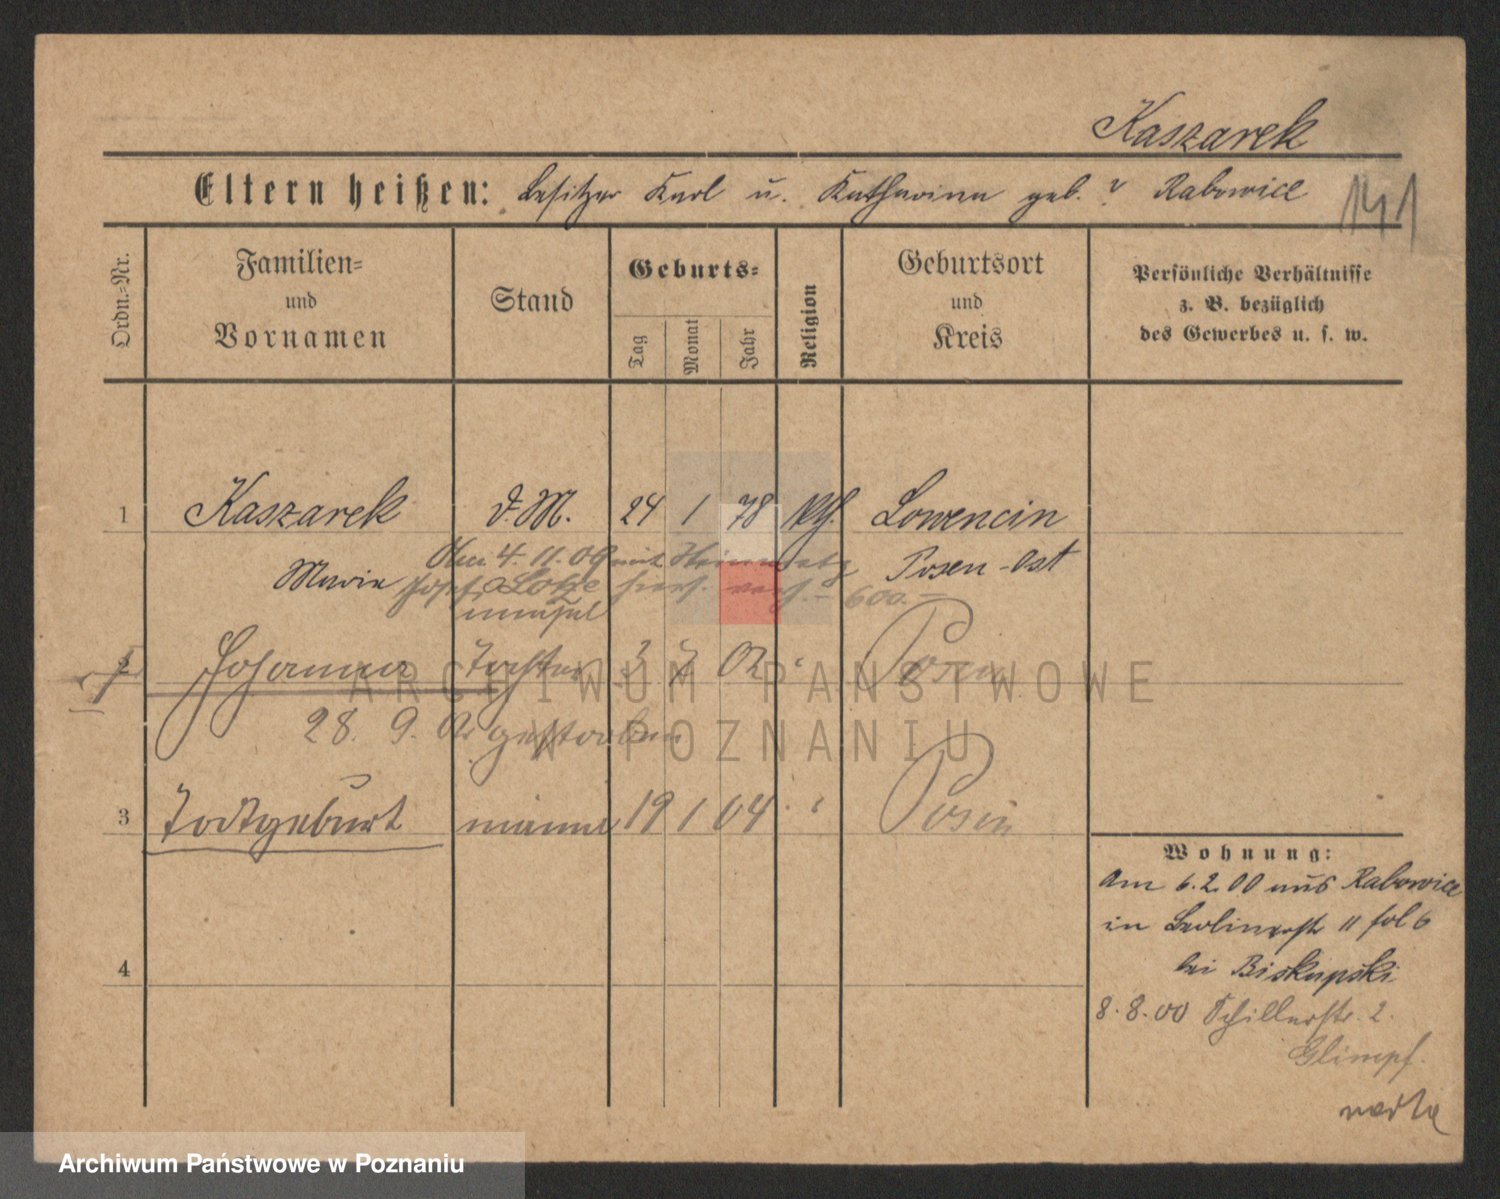 Kaszarek
Eltern heißen: Besitzer Karl u. Katharina geb. ? Rabowice
141
Ordn.-Nr.
Familien-
und
Vornamen
Stand
Geburts-
Tag
Monat
Jahr
Religion
Geburtsort
und
Kreis
Persönliche Verhältnisse
z. B. bezüglich
des Gewerbes u. s. w.
1 Kaszarek d. M. 24 1 78 kth. Lowencin
Marie Posen-Ost
4. 11. 09 mit
Josef Lotze hier verh. 600.
2 Johanna Tochter 3 02 Posen
28. 9. 02 gestorben
3 Todtgeburt männl 19 1 04 Posen
4
Wohnung:
Am 6. 2. 00 aus Rabowice
in Berlinerstr 11 fol 6
bei Biskupski
8. 8. 00 Schillerstr. 2.
Glimpf.
ARCHIWUM PAŃSTWOWE
W POZNANIU
Archiwum Państwowe w Poznaniu